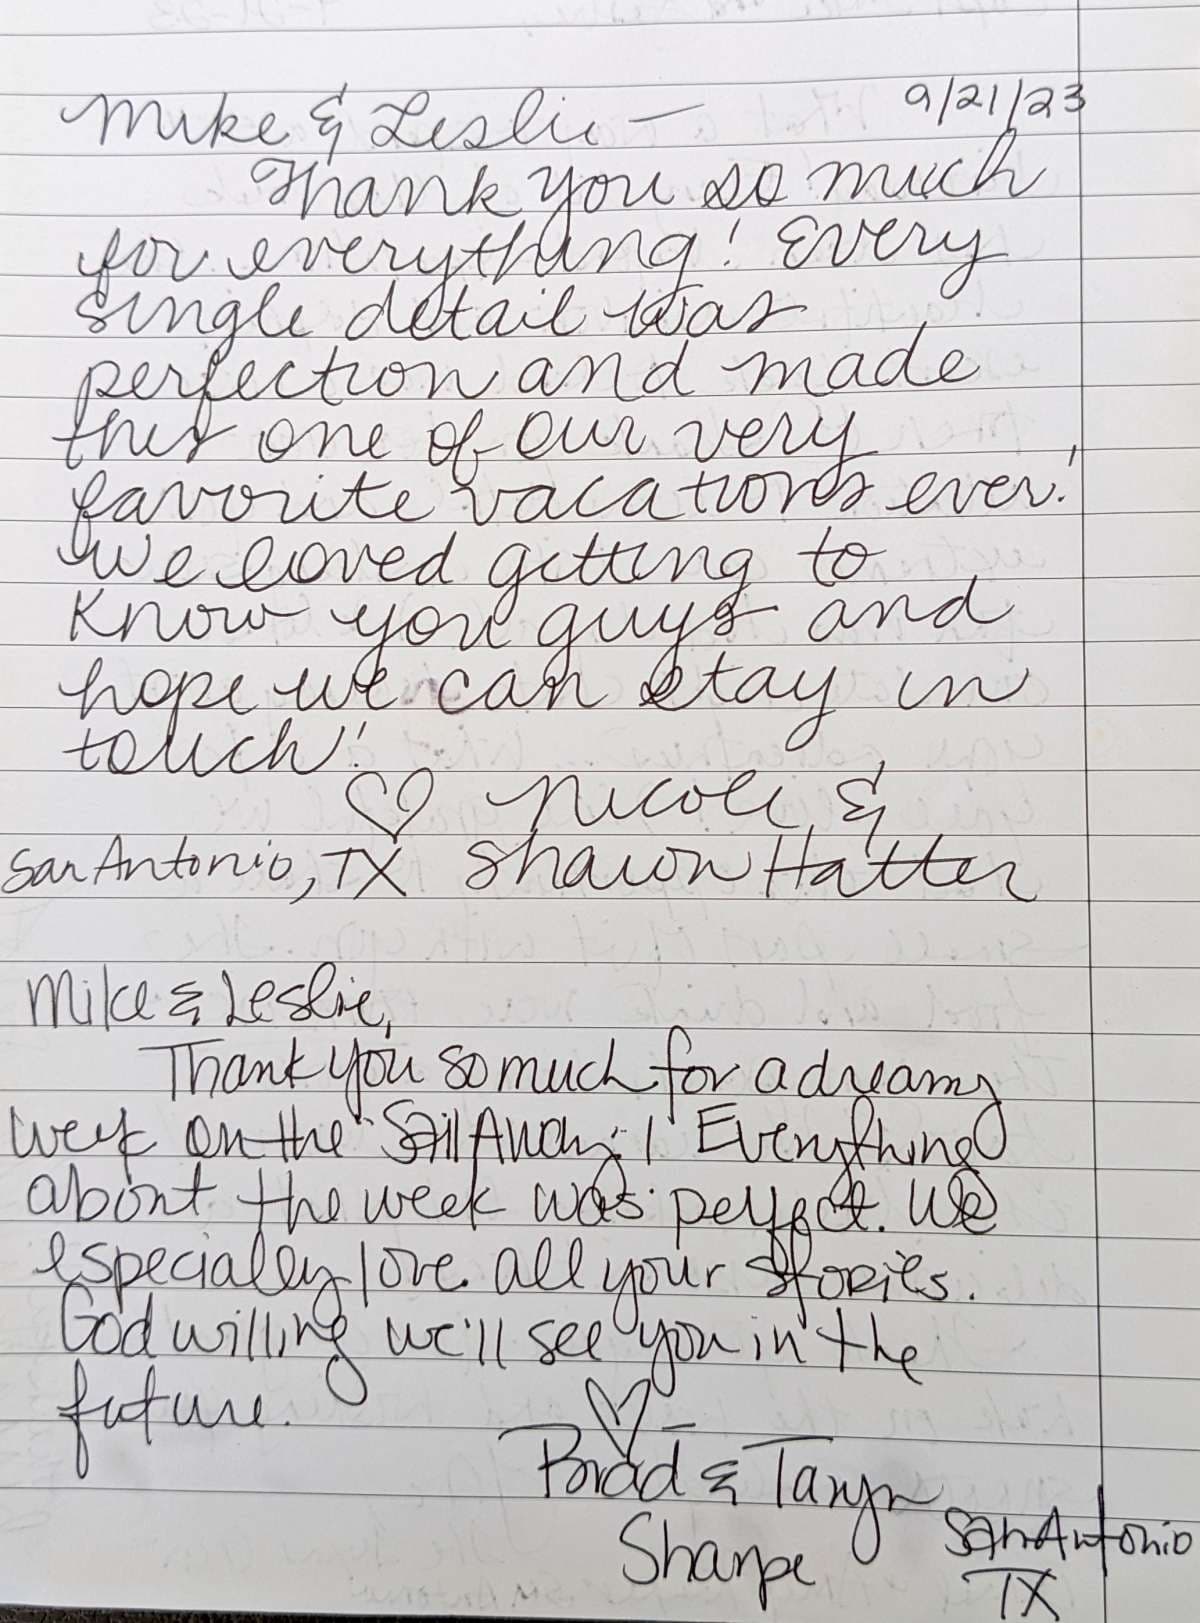 9/21/23
Mike & Leslie —
Thank you so much
for everything! Every
single detail was
perfection and made
this one of our very
favorite vacations ever!
We loved getting to
know you guys and
hope we can stay in
touch!
♡ Nicole &
San Antonio, TX Shawn Hatter
Mike & Leslie,
Thank you so much for a dreamy
week on the "Sail Away"! Everything
about the week was perfect. We
especially love all your stories.
God willing we'll see you in the
future.
♡ –
Brad & Taryn
Sharpe San Antonio
TX